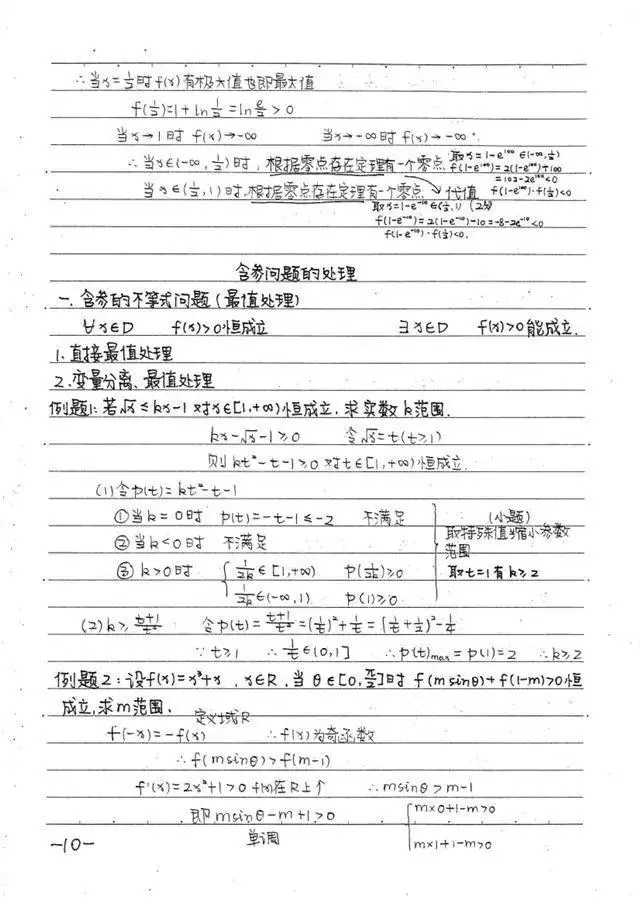 ∴当x=1/2时f(x)有极大值也即最大值
f(1/2)=1+ln1/2=lne/2>0
当x→1时 f(x)→-∞ 当x→-∞时 f(x)→-∞.
∴当x∈(-∞,1/2)时,根据零点存在定理有一个零点 取x=1-e^100∈(-∞,1/2)
f(1-e^100)=2(1-e^100)+100
=102-2e^100<0
当x∈(1/2,1)时,根据零点存在定理有一个零点 代值 f(1-e^100)·f(1/2)<0
取x=1-e^-10∈(1/2,1) (2分)
f(1-e^-10)=2(1-e^-10)-10=-8-2e^-10<0
f(1-e^-10)·f(1/2)<0.
含参问题的处理
一.含参的不等式问题(最值处理)
∀x∈D f(x)>0恒成立 ∃x∈D f(x)>0能成立.
1.直接最值处理
2.变量分离、最值处理
例题1:若√x≤kx-1对x∈[1,+∞)恒成立,求实数k范围.
kx-√x-1≥0 令√x=t(t≥1)
则kt²-t-1≥0对t∈[1,+∞)恒成立.
(1)令p(t)=kt²-t-1
①当k=0时 p(t)=-t-1≤-2 不满足
②当k<0时 不满足
③k>0时 { 1/2k∈[1,+∞) p(1/2k)≥0
1/2k∈(-∞,1) p(1)≥0
(小题)
取特殊值缩小参数
范围
取t=1有k≥2
(2)k≥t+1/t² 令p(t)=t+1/t²=(1/t)²+1/t=(1/t+1/2)²-1/4
∵t≥1 ∴1/t∈(0,1] ∴p(t)max=p(1)=2 ∴k≥2
例题2:设f(x)=x³+x,x∈R.当θ∈[0,π/2]时f(msinθ)+f(1-m)>0恒
成立,求m范围.
定义域R
f(-x)=-f(x) ∴f(x)为奇函数
∴f(msinθ)>f(m-1)
f'(x)=2x²+1>0 f(x)在R上个 ∴msinθ>m-1
即msinθ-m+1>0 { m×0+1-m>0
单调 m×1+1-m>0
-10-